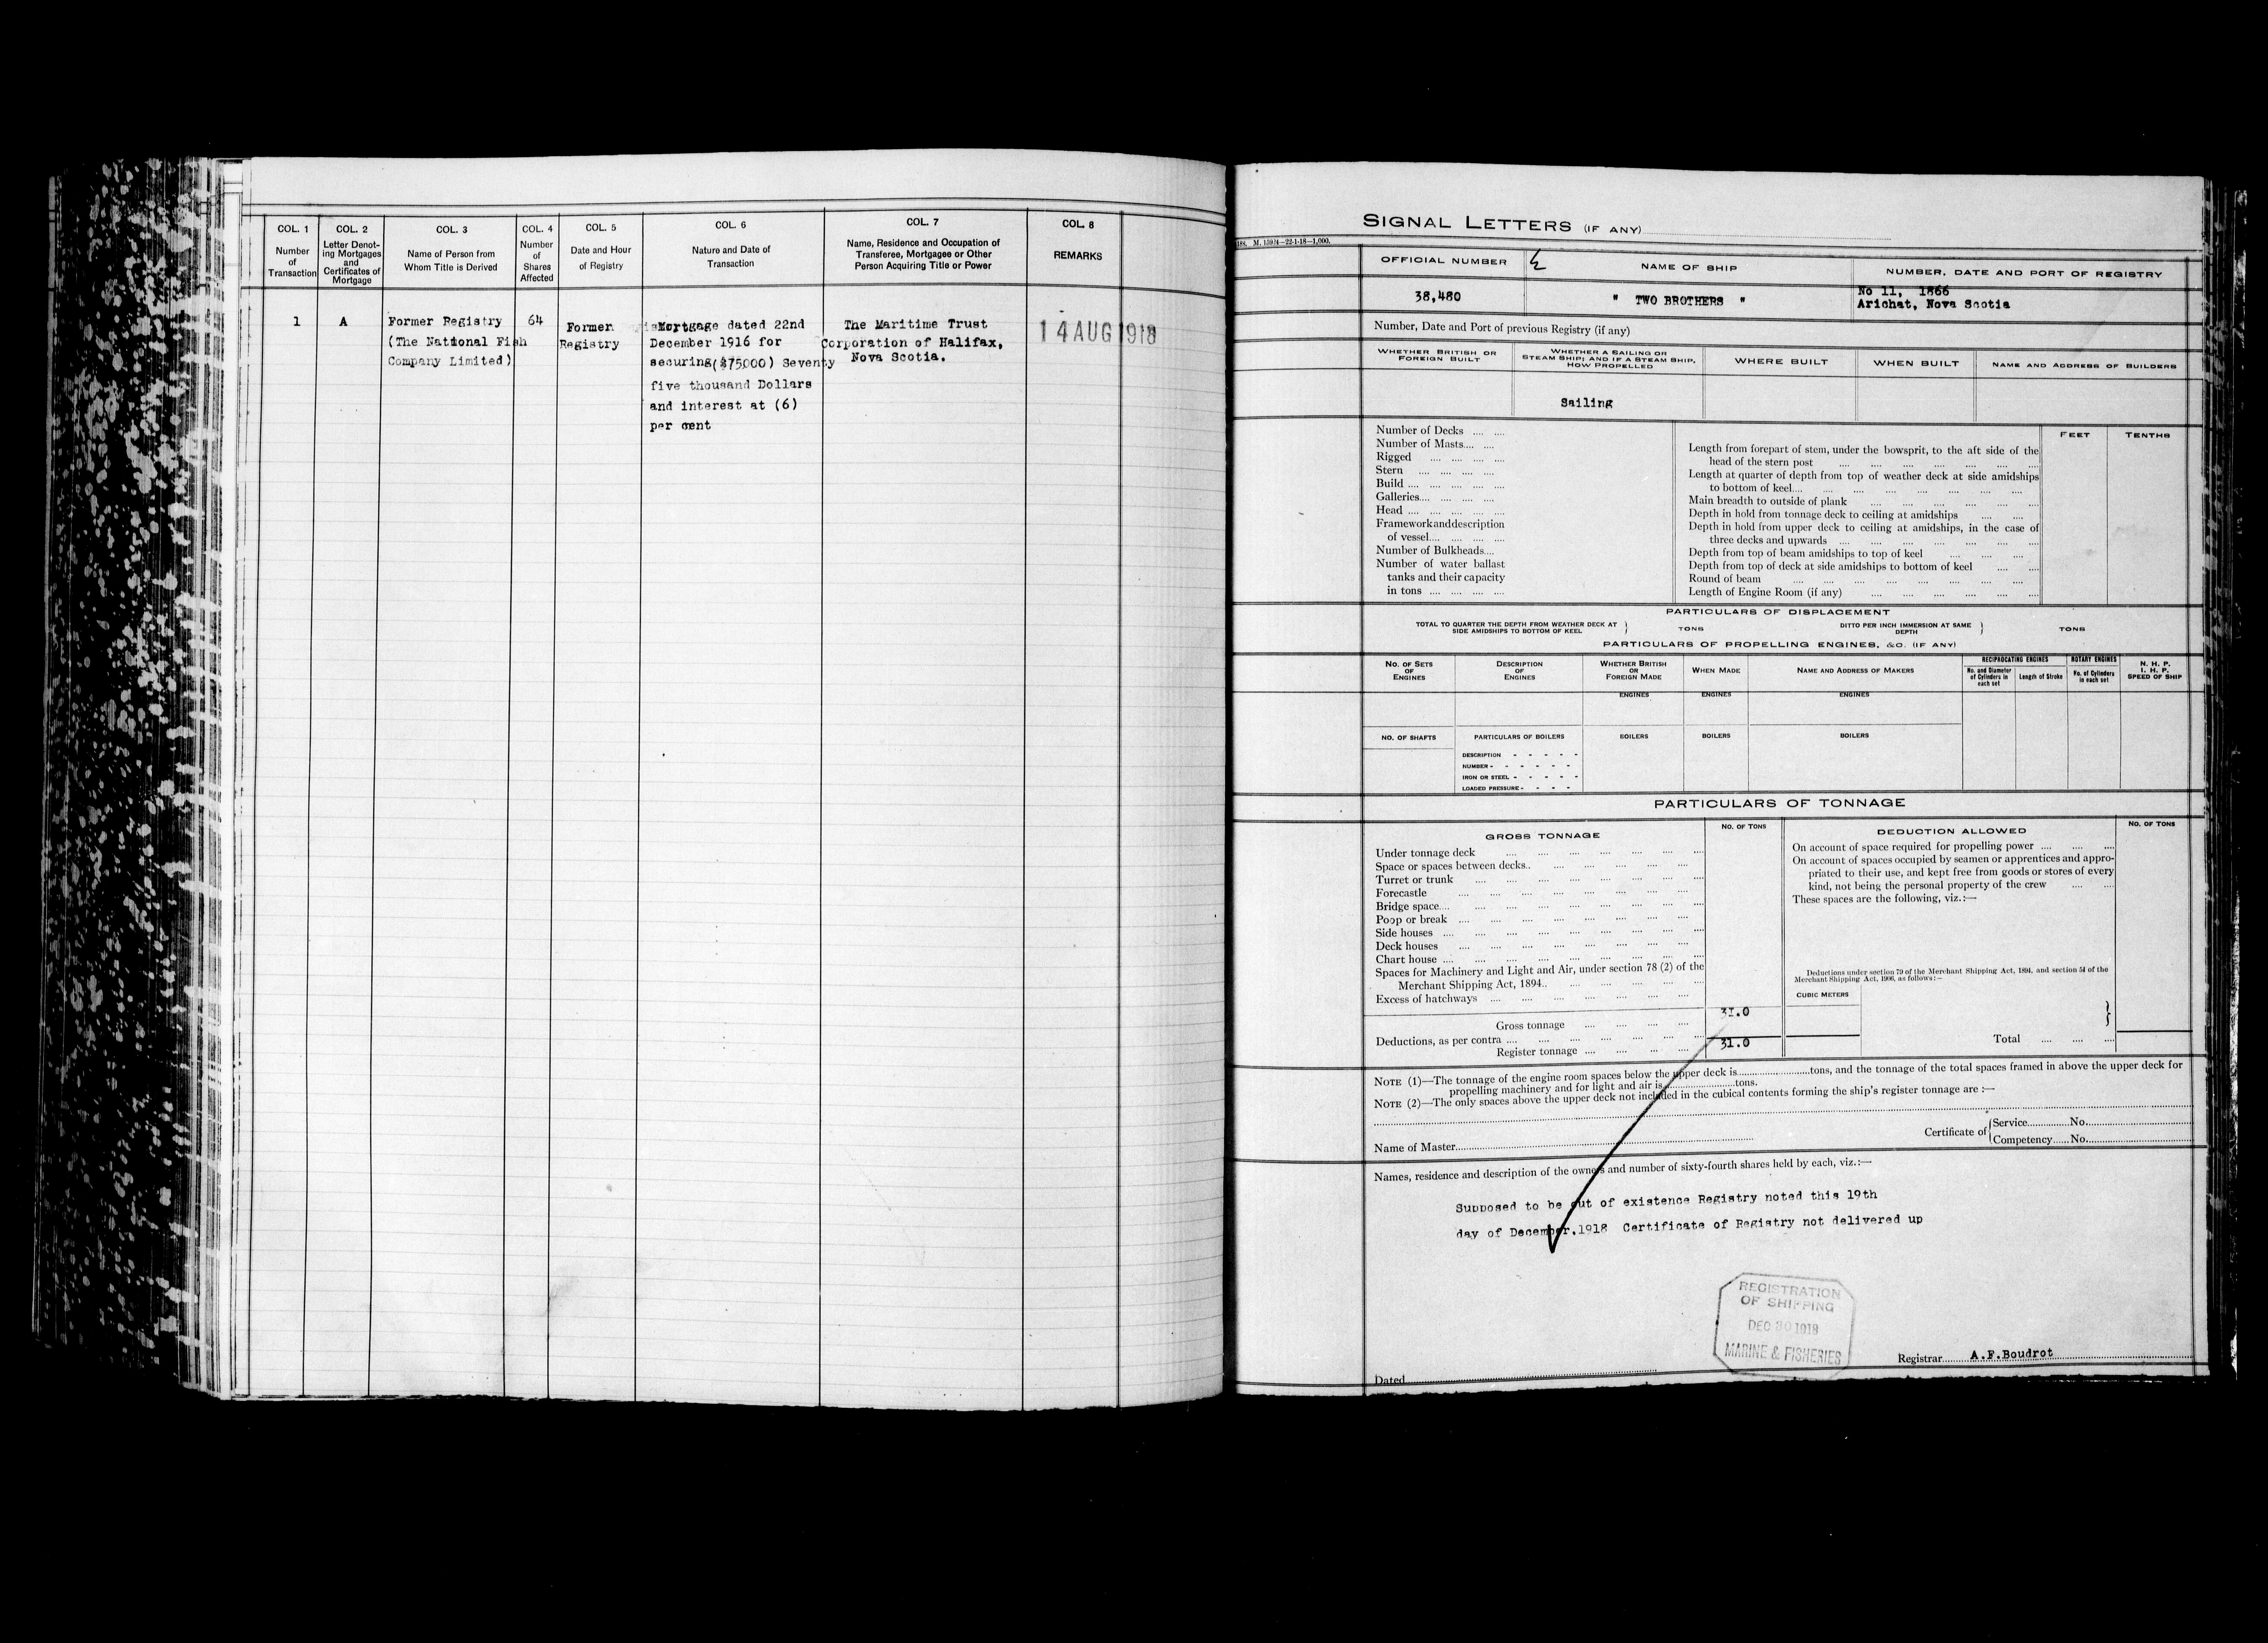 COL. 1
Number
of
Transaction
COL. 2
Letter Denot-
ing Mortgages
and
Certificates of
Mortgage
COL. 3
Name of Person from
Whom Title is Derived
COL. 4
Number
of
Shares
Affected
COL. 5
Date and Hour
of Registry
COL. 6
Nature and Date of
Transaction
COL. 7
Name, Residence and Occupation of
Transferee, Mortgagee or Other
Person Acquiring Title or Power
COL. 8
REMARKS
1
A
Former Registry
(The National Fish
Company Limited)
64
Former
Registry
Mortgage dated 22nd
December 1916 for
securing($75000) Seventy
five thousand Dollars
and interest at (6)
per cent
The Maritime Trust
Corporation of Halifax,
Nova Scotia.
14 AUG 1918
SIGNAL LETTERS (IF ANY)
OFFICIAL NUMBER
NAME OF SHIP
NUMBER, DATE AND PORT OF REGISTRY
38,480
" TWO BROTHERS "
No 11, 1866
Arichat, Nova Scotia
Number, Date and Port of previous Registry (if any)
WHETHER BRITISH OR
FOREIGN BUILT
WHETHER A SAILING OR
STEAM SHIP; AND IF A STEAM SHIP,
HOW PROPELLED
WHERE BUILT
WHEN BUILT
NAME AND ADDRESS OF BUILDERS
Sailing
Number of Decks
Number of Masts
Rigged
Stern
Build
Galleries
Head
Framework and description
of vessel
Number of Bulkheads
Number of water ballast
tanks and their capacity
in tons
FEET
TENTHS
Length from forepart of stem, under the bowsprit, to the aft side of the
head of the stern post
Length at quarter of depth from top of weather deck at side amidships
to bottom of keel
Main breadth to outside of plank
Depth in hold from tonnage deck to ceiling at amidships
Depth in hold from upper deck to ceiling at amidships, in the case of
three decks and upwards
Depth from top of beam amidships to top of keel
Depth from top of deck at side amidships to bottom of keel
Round of beam
Length of Engine Room (if any)
PARTICULARS OF DISPLACEMENT
TOTAL TO QUARTER THE DEPTH FROM WEATHER DECK AT
SIDE AMIDSHIPS TO BOTTOM OF KEEL
TONS
DITTO PER INCH IMMERSION AT SAME
DEPTH
TONS
PARTICULARS OF PROPELLING ENGINES, &C. (IF ANY)
NO. OF SETS
OF
ENGINES
DESCRIPTION
OF
ENGINES
WHETHER BRITISH
OR
FOREIGN MADE
WHEN MADE
NAME AND ADDRESS OF MAKERS
RECIPROCATING ENGINES
No. and Diameter
of Cylinders in
each set
Length of Stroke
ROTARY ENGINES
No. of Cylinders
in each set
N. H. P.
I. H. P.
SPEED OF SHIP
ENGINES
ENGINES
ENGINES
NO. OF SHAFTS
PARTICULARS OF BOILERS
BOILERS
BOILERS
BOILERS
DESCRIPTION
NUMBER
IRON OR STEEL
LOADED PRESSURE
PARTICULARS OF TONNAGE
GROSS TONNAGE
NO. OF TONS
DEDUCTION ALLOWED
NO. OF TONS
Under tonnage deck
Space or spaces between decks
Turret or trunk
Forecastle
Bridge space
Poop or break
Side houses
Deck houses
Chart house
Spaces for Machinery and Light and Air, under section 78 (2) of the
Merchant Shipping Act, 1894
Excess of hatchways
Gross tonnage
31.0
Deductions, as per contra
Register tonnage
31.0
On account of space required for propelling power
On account of spaces occupied by seamen or apprentices and appro-
priated to their use, and kept free from goods or stores of every
kind, not being the personal property of the crew
These spaces are the following, viz.:—
Deductions under section 79 of the Merchant Shipping Act, 1894, and section 54 of the
Merchant Shipping Act, 1906, as follows:—
CUBIC METERS
Total
NOTE (1)—The tonnage of the engine room spaces below the upper deck is tons, and the tonnage of the total spaces framed in above the upper deck for
propelling machinery and for light and air is tons.
NOTE (2)—The only spaces above the upper deck not included in the cubical contents forming the ship's register tonnage are :—
Name of Master
Certificate of
Service No.
Competency No.
Names, residence and description of the owners and number of sixty-fourth shares held by each, viz.:—
Supposed to be out of existence Registry noted this 19th
day of December.1918 Certificate of Registry not delivered up
REGISTRATION
OF SHIPPING
DEC 30 1918
MARINE & FISHERIES
Dated
Registrar A.F.Boudrot